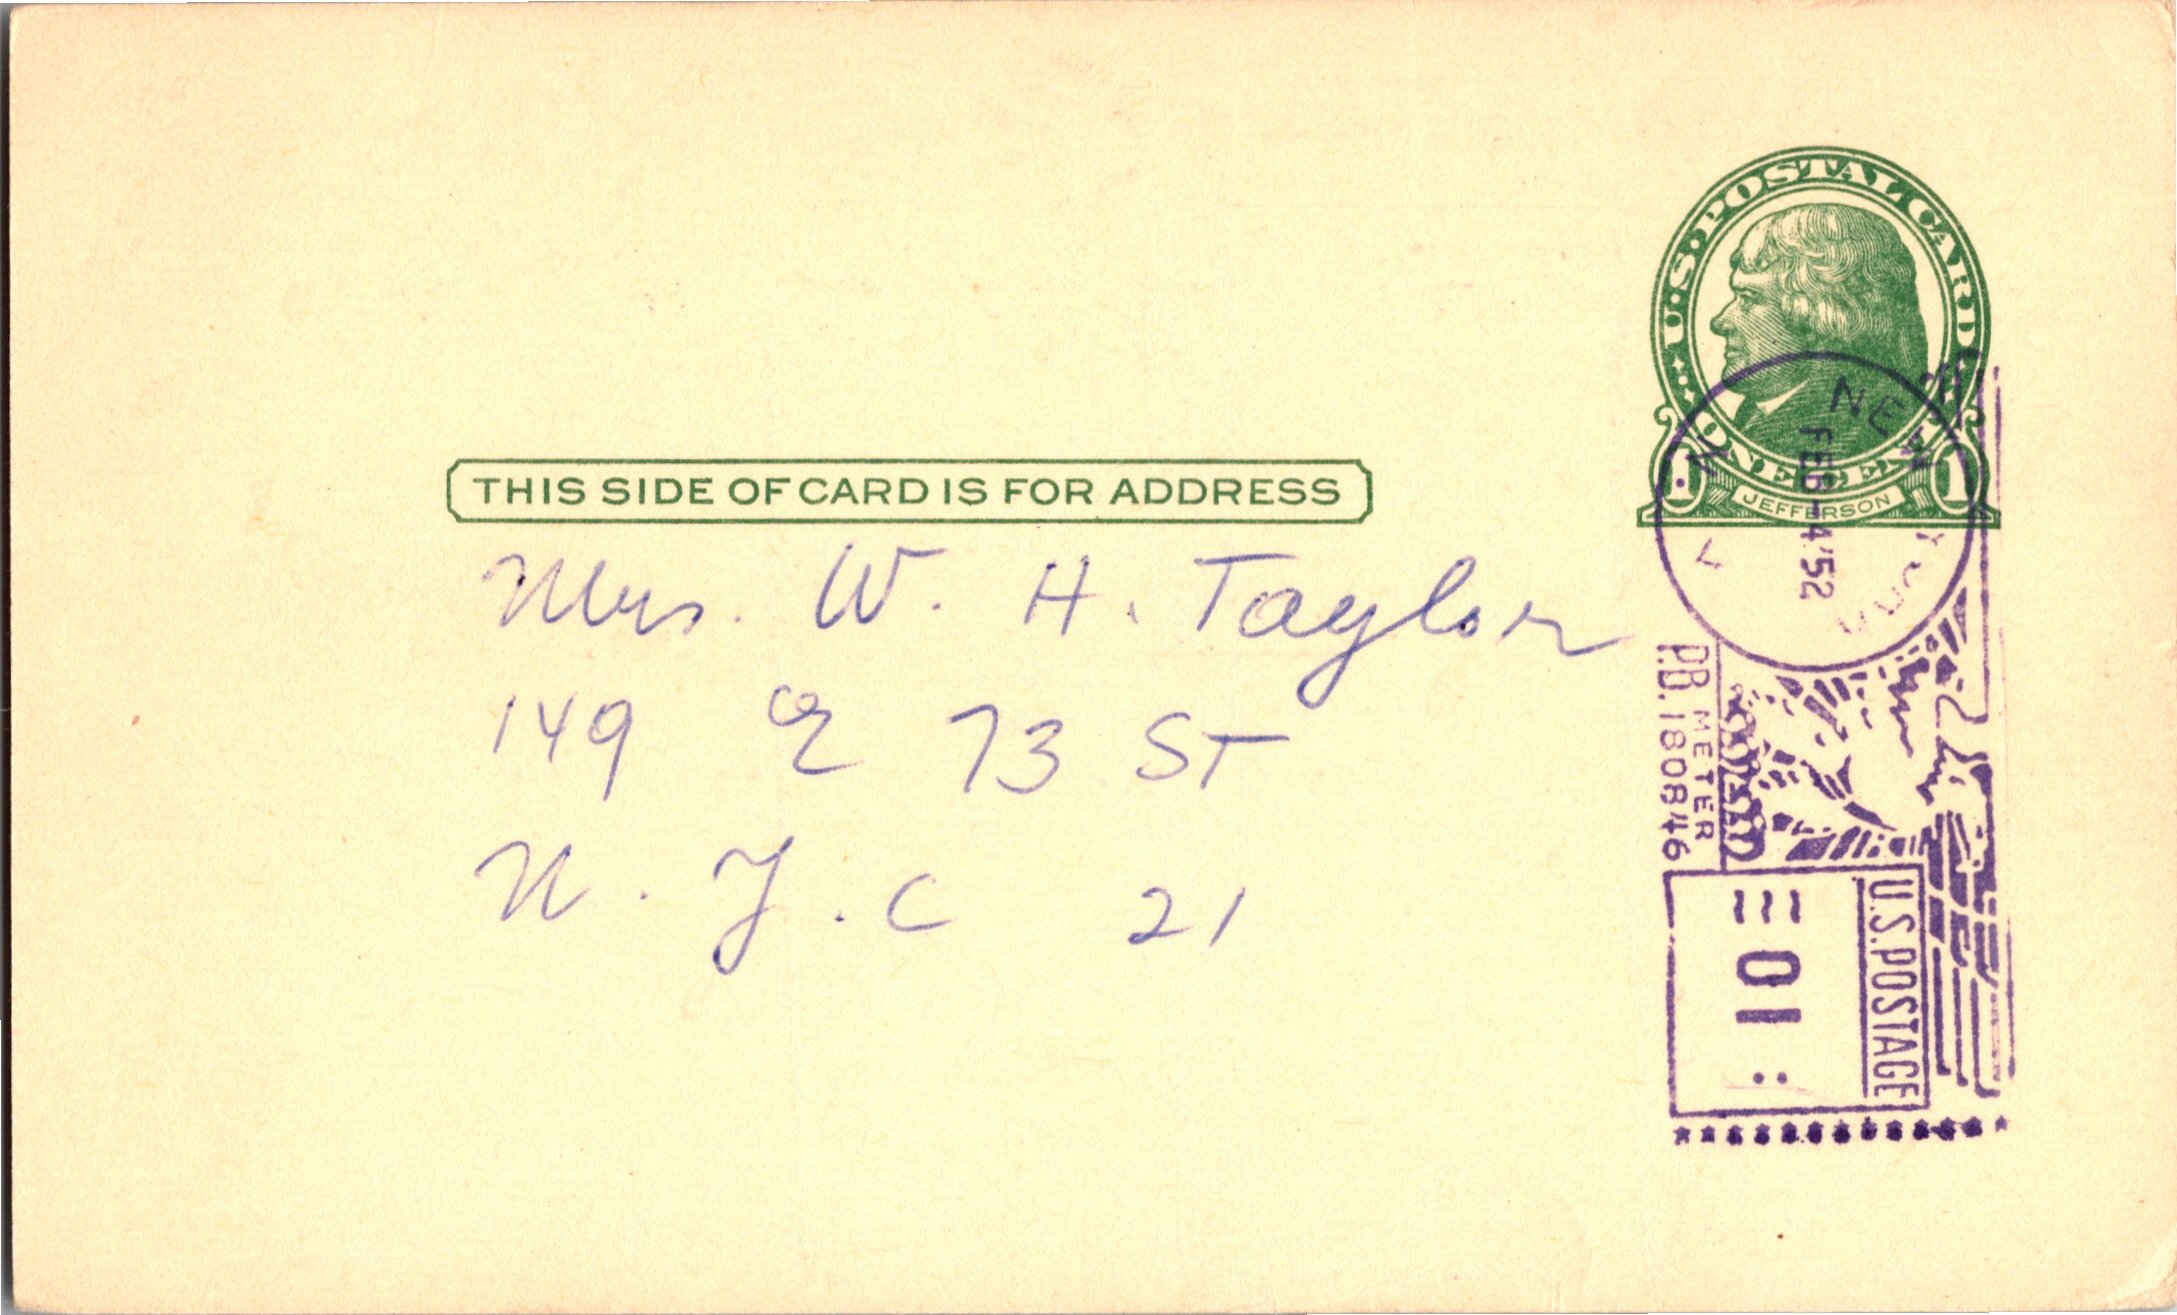 U.S. POSTAL CARD
ONE CENT
1 JEFFERSON 1
THIS SIDE OF CARD IS FOR ADDRESS
Mrs. W. H. Taylor
149 E 73 ST
N. Y. C 21
NEW YORK
N. Y.
FEB-4'52
PB METER
180846
U.S. POSTAGE
01